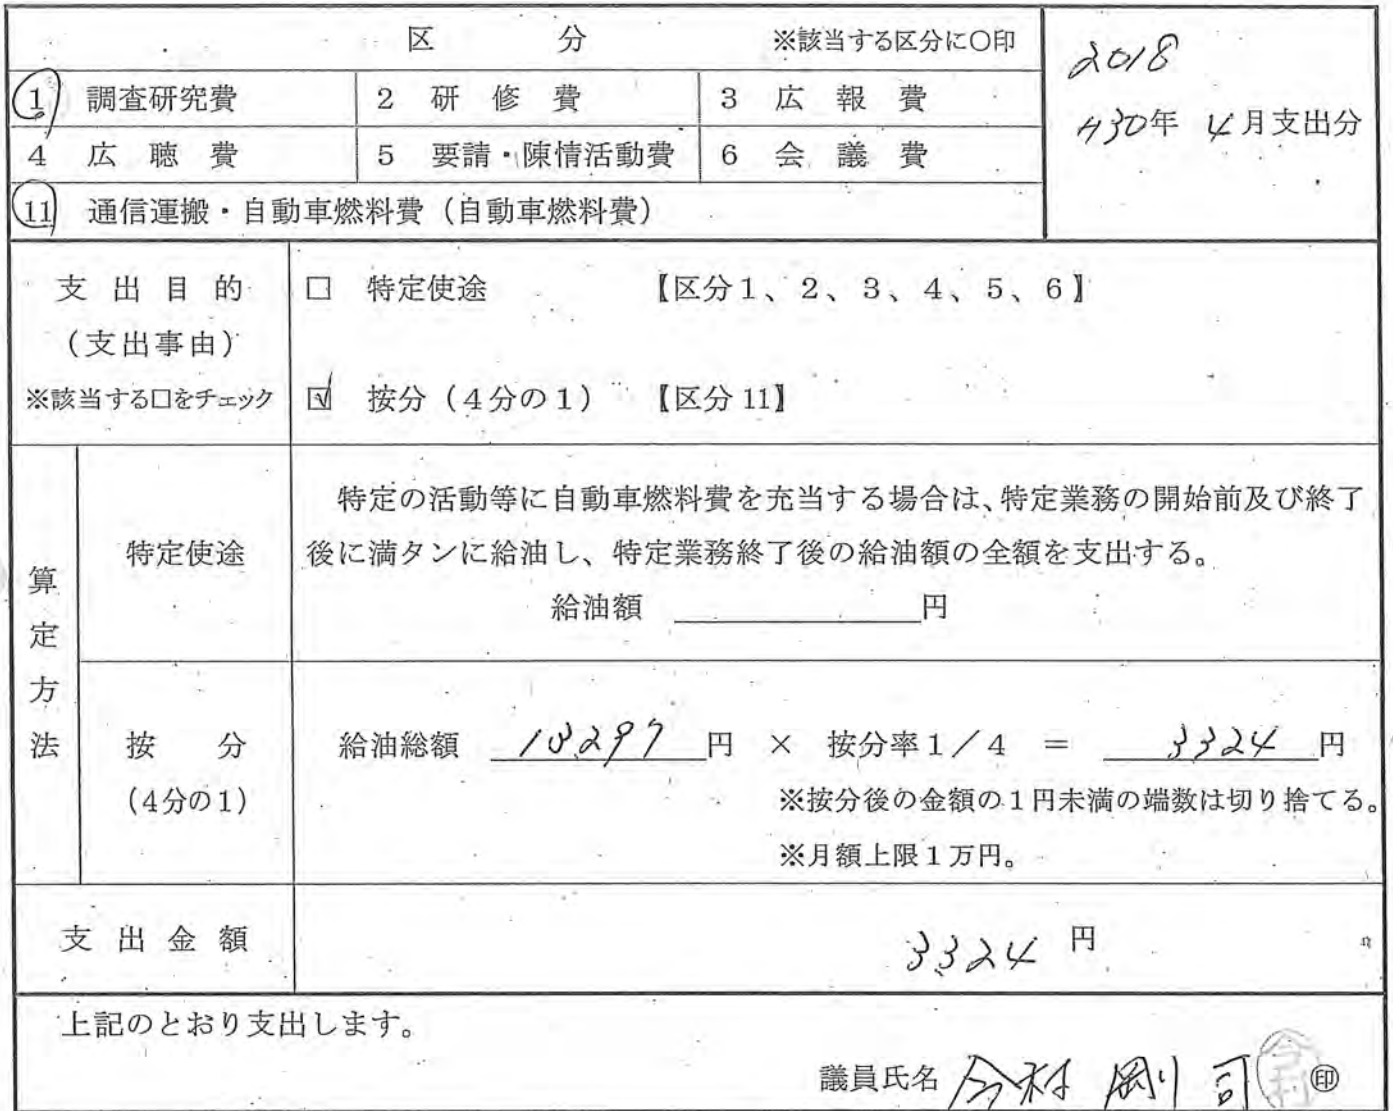 区　分　※該当する区分に○印
2018
H30年 4月支出分
1 調査研究費　2 研修費　3 広報費
4 広聴費　5 要請・陳情活動費　6 会議費
11 通信運搬・自動車燃料費（自動車燃料費）
支出目的
（支出事由）
※該当する□をチェック
□ 特定使途　【区分1、2、3、4、5、6】
☑ 按分（4分の1）　【区分11】
算定方法
特定使途
特定の活動等に自動車燃料費を充当する場合は、特定業務の開始前及び終了
後に満タンに給油し、特定業務終了後の給油額の全額を支出する。
給油額　　　円
按分
（4分の1）
給油総額 13297円 × 按分率1／4 ＝ 3324円
※按分後の金額の1円未満の端数は切り捨てる。
※月額上限1万円。
支出金額　3324 円
上記のとおり支出します。
議員氏名 今村 剛司 ㊞
今村